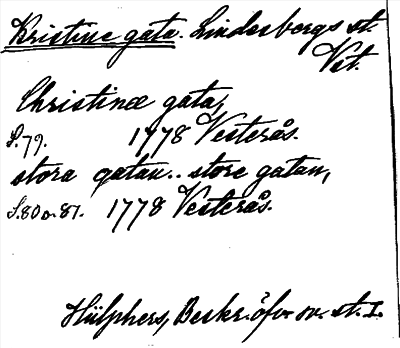 Kristine gata. Lindesbergs st.
Vst.
Christinæ gata,
S. 79. 1778 Vesterås.
stora gatan.. store gatan,
S. 80 o. 81. 1778 Vesterås.
Hülphers, Beskr. öfv. sv. st. I.